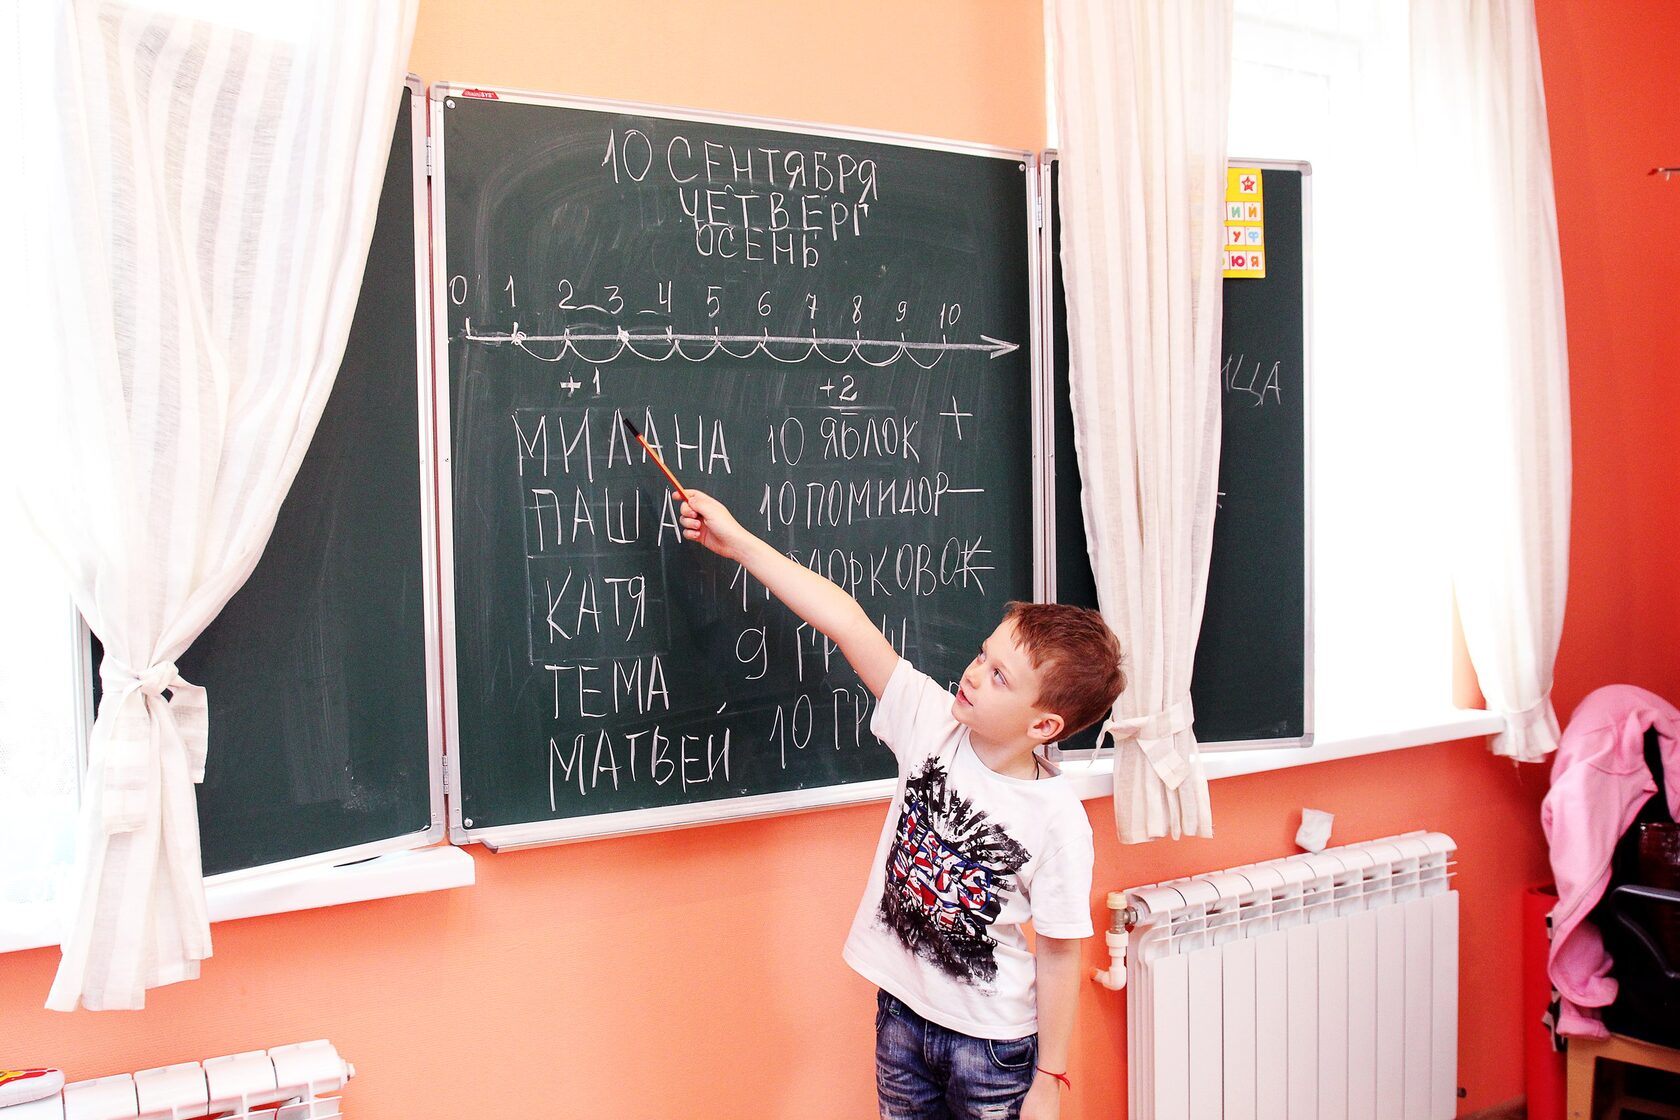 10 СЕНТЯБРЯ
ЧЕТВЕРГ
ОСЕНЬ
0 1 2 3 4 5 6 7 8 9 10
+1 +2
МИЛАНА 10 ЯБЛОК +
ПАША 10 ПОМИДОР —
КАТЯ МОРКОВОК
ТЕМА 9 ГРУШ
МАТВЕЙ 10
ИЙ
УФ
ЮЯ